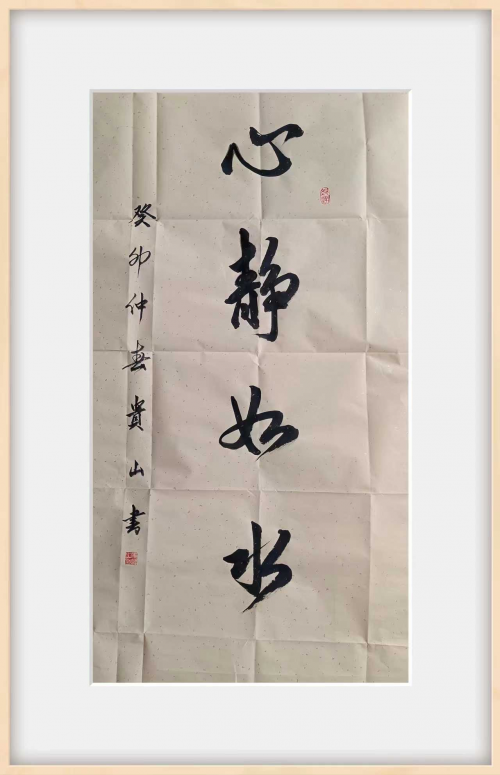 心静如水
癸卯仲春貴山書